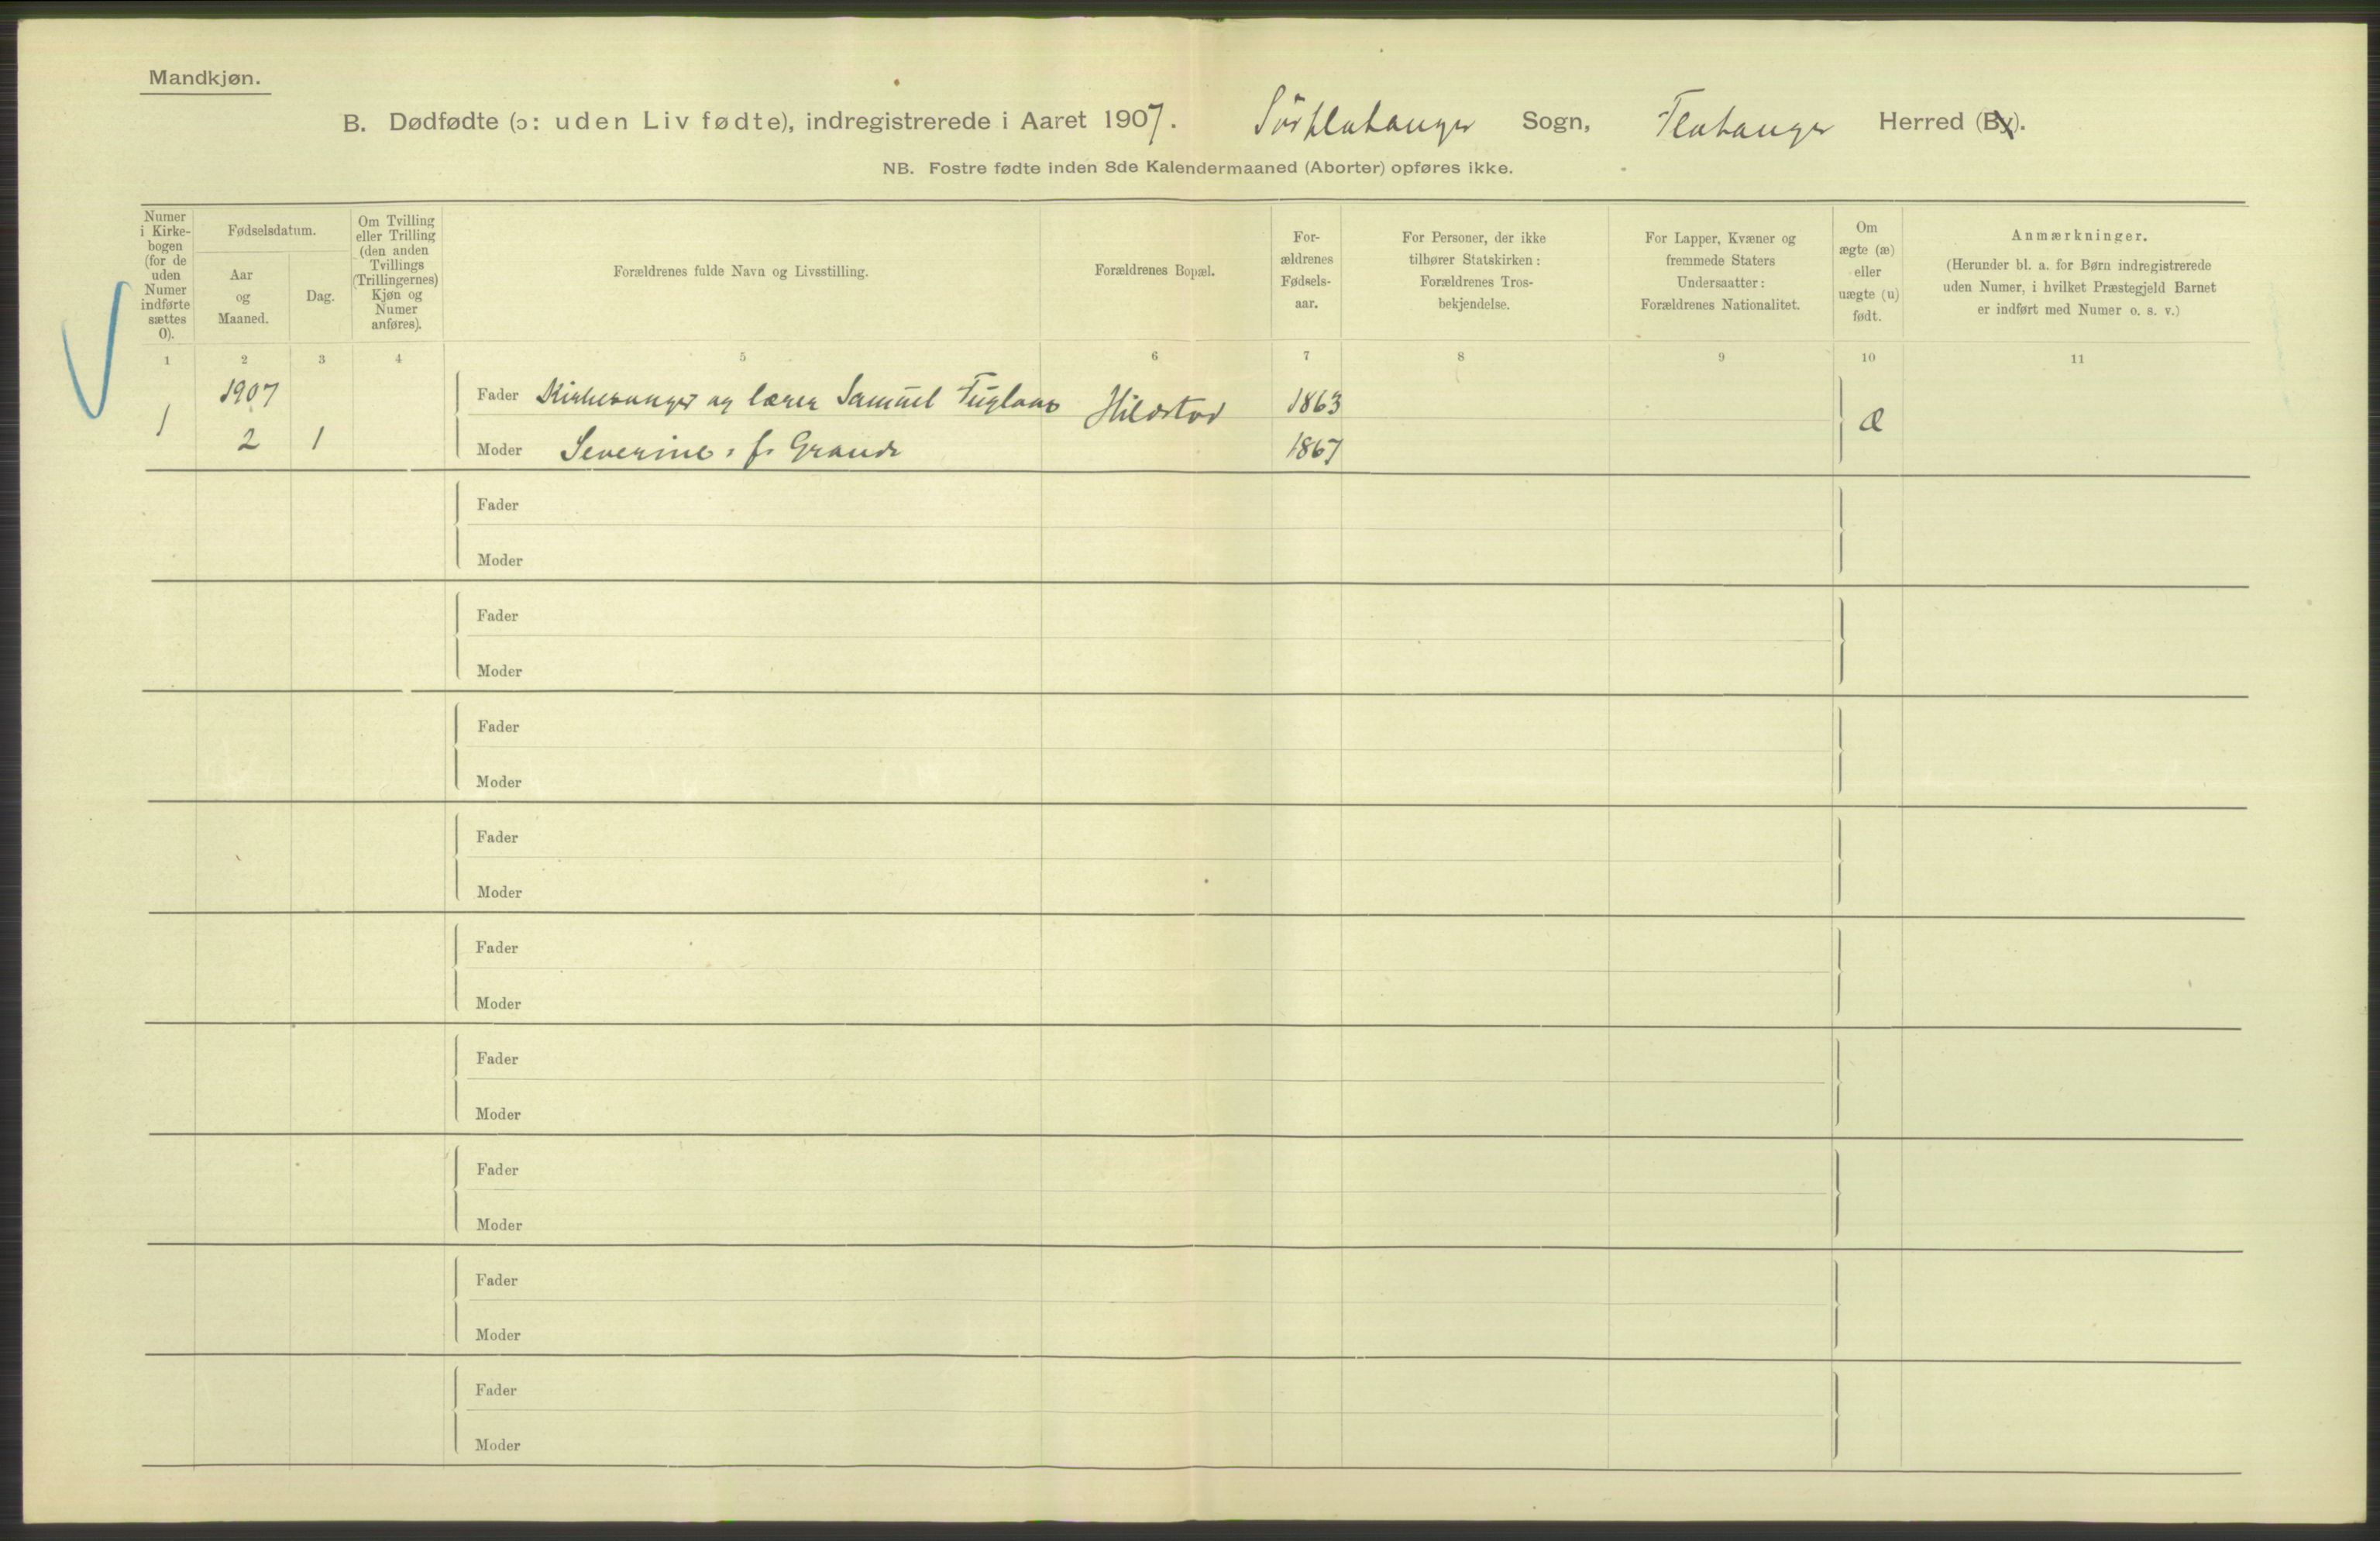 Mandkjøn.
B. Dødfødte (ɔ: uden Liv fødte), indregistrerede i Aaret 1907. Sörflatanger Sogn, Flatanger Herred (By).
NB. Fostre fødte inden 8de Kalendermaaned (Aborter) opføres ikke.
Numer i Kirke-bogen (for de uden Numer indførte sættes 0).
Fødselsdatum.
Aar og Maaned.
Dag.
Om Tvilling eller Trilling (den anden Tvillings (Trillingernes) Kjøn og Numer anføres).
Forældrenes fulde Navn og Livsstilling.
Forældrenes Bopæl.
For-ældrenes Fødsels-aar.
For Personer, der ikke tilhører Statskirken: Forældrenes Tros-bekjendelse.
For Lapper, Kvæner og fremmede Staters Undersaatter: Forældrenes Nationalitet.
Om ægte (æ) eller uægte (u) født.
Anmærkninger.
(Herunder bl. a. for Børn indregistrerede uden Numer, i hvilket Præstegjeld Barnet er indført med Numer o. s. v.)
1 2 3 4 5 6 7 8 9 10 11
1907
Fader Kirkesanger og lærer Samuel Fuglaas Hildstad 1863
1 2 1 æ
Moder Severine, f. Grande 1867
Fader
Moder
Fader
Moder
Fader
Moder
Fader
Moder
Fader
Moder
Fader
Moder
Fader
Moder
Fader
Moder
Fader
Moder